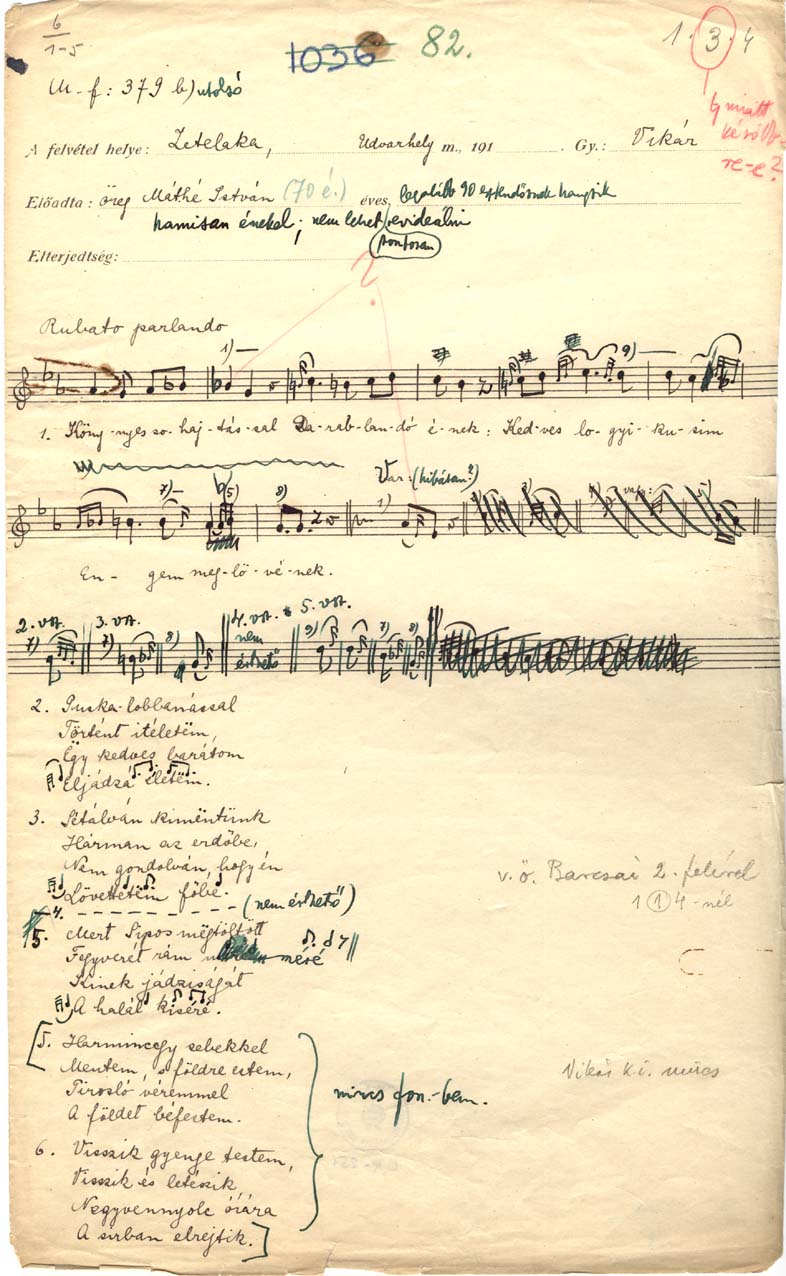 6
1-5
1036 82.
1.3.4
M.-f: 379 b) utolsó
miatt
később-
re-e?
A felvétel helye: Zetelaka, Udvarhely m., 191 . Gy.: Vikár
Előadta: öreg Máthé István (70 é.) éves, legalább 90 esztendősnek hangzik
hamisan énekel; nem lehet revideálni
pontosan
Elterjedtség:
?
Rubato parlando
1) 9)
1. Köny-nyes so-haj-tás-sal Da-rab-lan-dó é-nek: Ked-ves lo-gyi-ku-sim
Var: (hibásan?)
7) 5) 8) 1)
En- gem meg-lö-vé-nek.
2. vsz. 3. vsz. 4. vsz. 5. vsz.
7) 7) 8) nem érthető 9) 7) 8)
2. Puska-lobbanással
Történt itéletëm,
Ëgy kedves barátom
Eljádzá életëm.
3. Sétálván kimëntünk
Hárman az erdőbe,
Nem gondolván, hogy én
Lövettetëm főbe.
4. – – – – – – – – (nem érthető)
5. Mert Sipos mëgtöltött
Fegyverét rám méré
Kinek jádziságát
A halál kiséré.
5. Harmincegy sebekkel
Mentem, s földre estem,
Pirosló véremmel
A földet béfestem.
6. Visszik gyenge testem,
Visszik és letészik
Negyvennyolc órára
A sirban elrejtik.
nincs fon.-ben.
v.ö. Barcsai 2. felével
1 1 4-nél
Vikár k.i. nincs